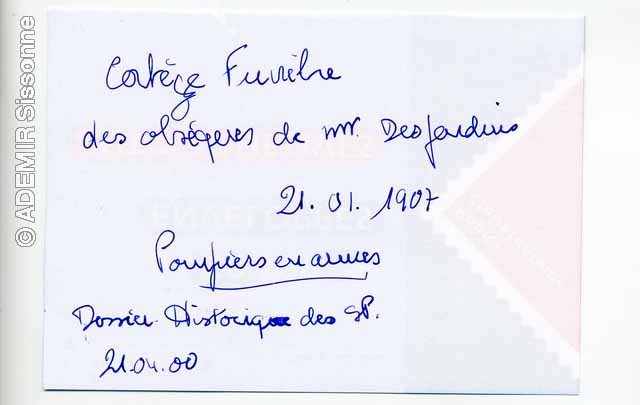 Cortège Funèbre
des obsèques de Mr. Desjardins
21. 01. 1907
Pompiers en armes
Dossier Historique des SP.
21.04.00
© ADEMIR Sissonne